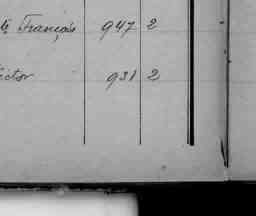 François 947 2
ictor 931 2